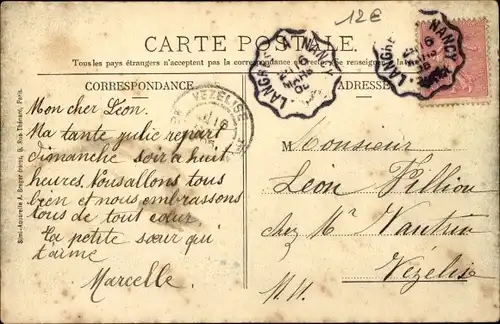 12€
CARTE POSTALE
Tous les pays étrangers n'acceptent pas la correspondance au recto. (Se renseigner à la
CORRESPONDANCE
ADRESSE
LANGRES NANCY
LANGRES NANCY
VEZELISE
Mon cher Léon.
Ma tante Julie repart
dimanche soir à huit
heures. Nous allons tous
bien et nous embrassons
tous de tout cœur.
Ta petite sœur qui
t'aime
Marcelle.
Monsieur
Léon Fillion
chez Mr Vautrin
Vézelise
M. M.
Simi-Aquarelle A. Breger frères, 9, Rue Thénard, Paris.